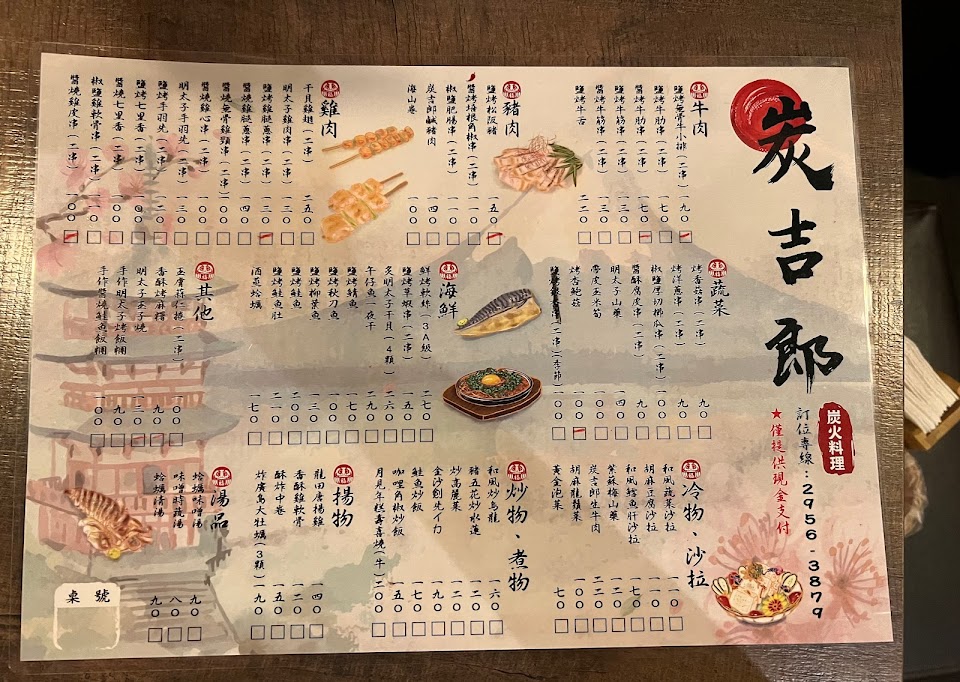 炭吉郎
炭火料理
訂位專線:2956-3879
★僅提供現金支付
牛肉
鹽烤蔥牛小排(二串) 一九〇
鹽烤牛肋串(二串) 一七〇
醬烤牛肋串(二串) 一七〇
鹽烤牛筋串(二串) 一三〇
醬烤牛筋串(二串) 一三〇
鹽烤牛舌 二二〇
豬肉
鹽烤松阪豬 一五〇
醬烤培根角椒串(二串) 一一〇
椒鹽肥腸串(二串) 一〇〇
炭吉郎鹹豬肉 一四〇
海山卷 一〇〇
雞肉
干貝雞翅(二串) 二五〇
明太子雞肉串(二串) 一三〇
鹽烤雞腿蔥串(二串) 一三〇
醬燒雞腿蔥串(二串) 一四〇
醬燒骨雞頸串(二串) 一〇〇
醬燒雞心串(二串) 一〇〇
明太子手羽先(二串) 一三〇
鹽烤手羽先(二串) 一二〇
鹽烤七里香(二串)
醬燒七里香(二串) 一〇〇
椒鹽雞軟骨串(二串) 一一〇
醬燒雞皮串(二串) 一〇〇
蔬菜
烤香菇串(二串) 九〇
烤洋蔥串(二串) 九〇
椒鹽厚切櫛瓜串(二串) 一〇〇
醬酥腐皮串(二串) 九〇
明太子山藥 一四〇
帶皮玉米筍 一〇〇
烤杏鮑菇 一〇〇
海鮮
鮮烤軟絲(3A級) 二七〇
鹽烤草蝦串(二串) 一五〇
炙明太子干貝(4顆) 二六〇
午仔魚一夜干 二九〇
鹽烤鯖魚 一七〇
鹽烤秋刀魚 一〇〇
鹽烤柳葉魚 一三〇
鹽烤鮭魚 二〇〇
鹽烤鮭魚肚 二一〇
酒蒸蛤蠣 一七〇
其他
玉骨筒仔捲(二串) 一〇〇
香酥烤麻糬 九〇
明太子玉子燒 一三〇
手作明太子烤飯糰 九〇
手作醬燒鮭魚飯糰 一〇〇
冷物、沙拉
和風蔬菜沙拉
胡麻豆腐沙拉
和風鱈魚肝沙拉
紫蘇梅山藥
炭吉郎生牛肉
胡麻龍鬚菜
黃金泡菜 七〇
炒物、煮物
和風炒烏龍 一六〇
豬五花炒水蓮
炒高麗菜
金沙創先イカ
鮭魚炒飯
咖哩角椒炒飯
月見年糕壽喜燒(牛) 二〇〇
揚物
龍田唐揚雞 一四〇
香酥雞軟骨 一二〇
酥炸中卷 一五〇
炸廣島大牡蠣(3顆) 一九〇
湯品
蛤蠣味噌湯 九〇
味噌時蔬湯 八〇
蛤蠣清湯 九〇
桌號